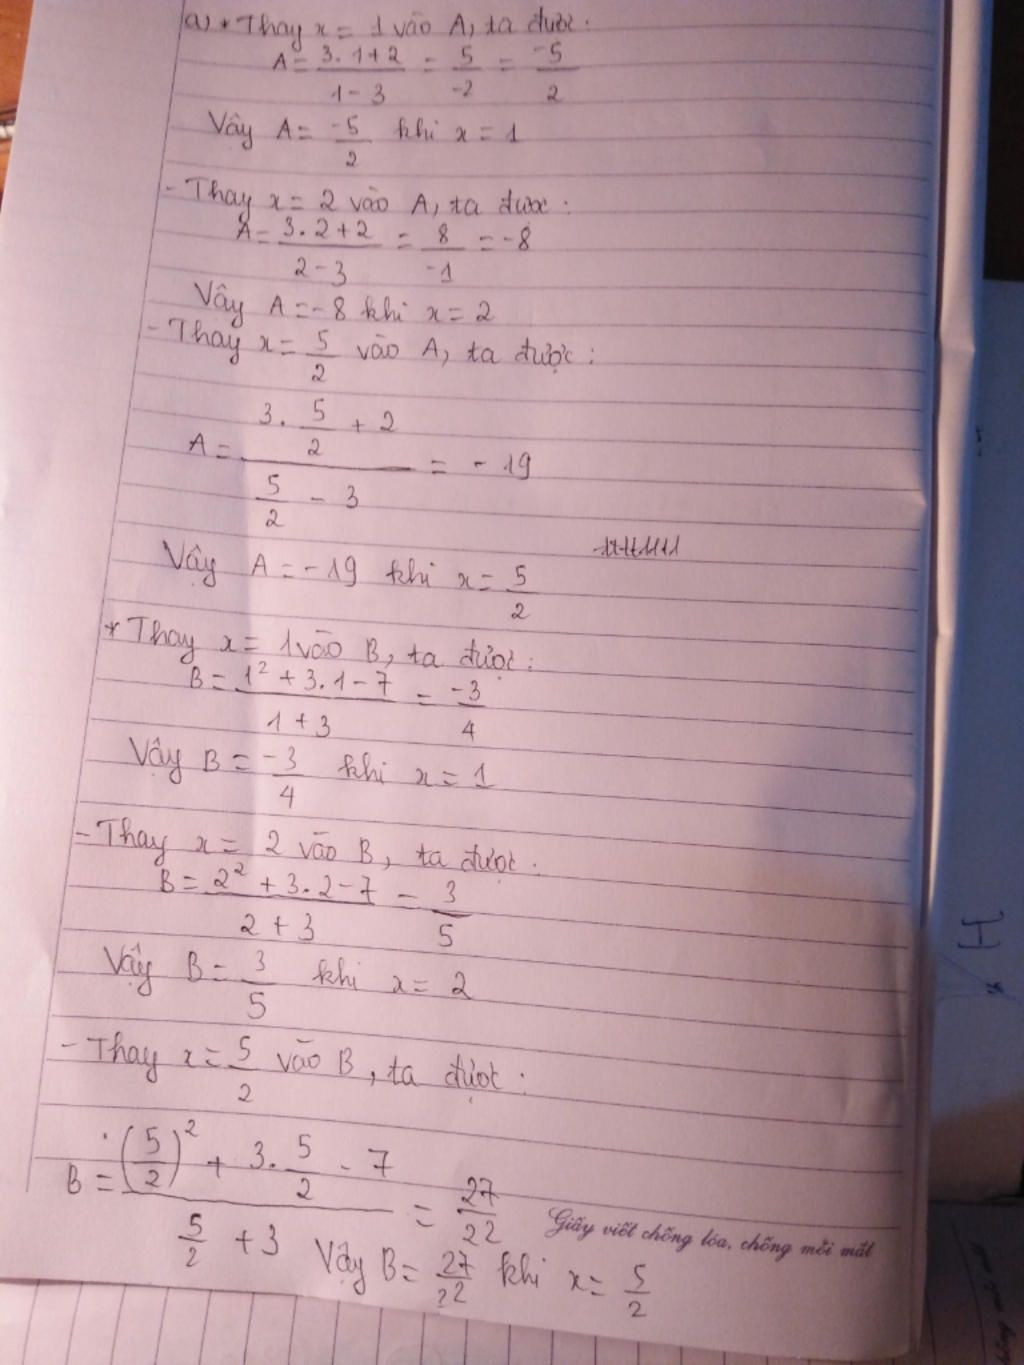 a) * Thay x = 1 vào A, ta được:
A = \frac{3.1+2}{1-3} = \frac{5}{-2} = \frac{-5}{2}
Vậy A = \frac{-5}{2} khi x = 1
- Thay x = 2 vào A, ta được:
A = \frac{3.2+2}{2-3} = \frac{8}{-1} = -8
Vậy A = -8 khi x = 2
- Thay x = \frac{5}{2} vào A, ta được:
A = \frac{3.\frac{5}{2}+2}{\frac{5}{2}-3} = -19
Vậy A = -19 khi x = \frac{5}{2}
* Thay x = 1 vào B, ta được:
B = \frac{1^2+3.1-7}{1+3} = \frac{-3}{4}
Vậy B = \frac{-3}{4} khi x = 1
- Thay x = 2 vào B, ta được:
B = \frac{2^2+3.2-7}{2+3} = \frac{3}{5}
Vậy B = \frac{3}{5} khi x = 2
- Thay x = \frac{5}{2} vào B, ta được:
B = \frac{(\frac{5}{2})^2+3.\frac{5}{2}-7}{\frac{5}{2}+3} = \frac{27}{22}
Giấy viết chống lóa, chống mỏi mắt
Vậy B = \frac{27}{22} khi x = \frac{5}{2}
H